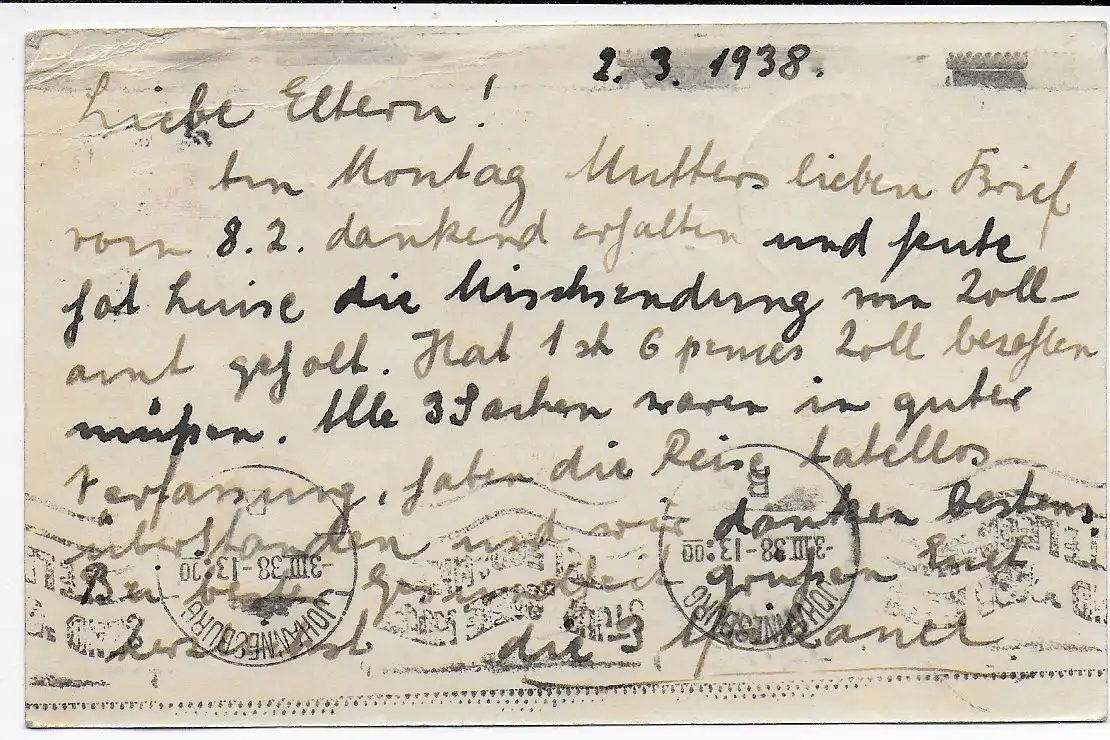 2. 3. 1938.
Liebe Eltern!
Am Montag Mutters lieben Brief
vom 8. 2. dankend erhalten und heute
hat Luise die Mischsendung vom Zoll-
amt geholt. Hat 1 sh 6 pences Zoll bezahlen
müßen. Alle 3 Sachen waren in guter
Verfassung, haben die Reise tadellos
überstanden und wir danken bestens.
Bei bester Gesundheit grüßen Euch
herzlichst die 3
JOHANNESBURG
-3 III 38 - 13:00
JOHANNESBURG
-3 III 38 - 13:00